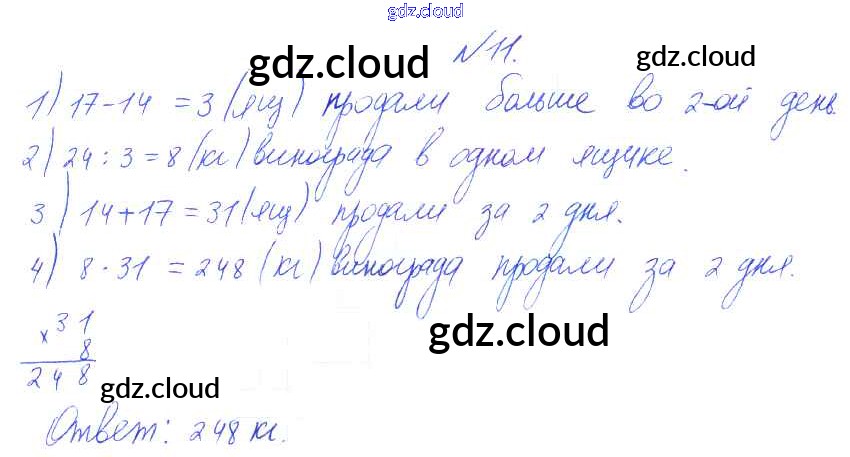 gdz.cloud
№ 11.
gdz.cloud
gdz.cloud
1) 17-14 = 3 (ящ) продали больше во 2-ой день.
2) 24 : 3 = 8 (кг) винограда в одном ящике.
3) 14+17 = 31 (ящ) продали за 2 дня.
4) 8 · 31 = 248 (кг) винограда продали за 2 дня.
× 31
8
248
gdz.cloud
gdz.cloud
Ответ: 248 кг.